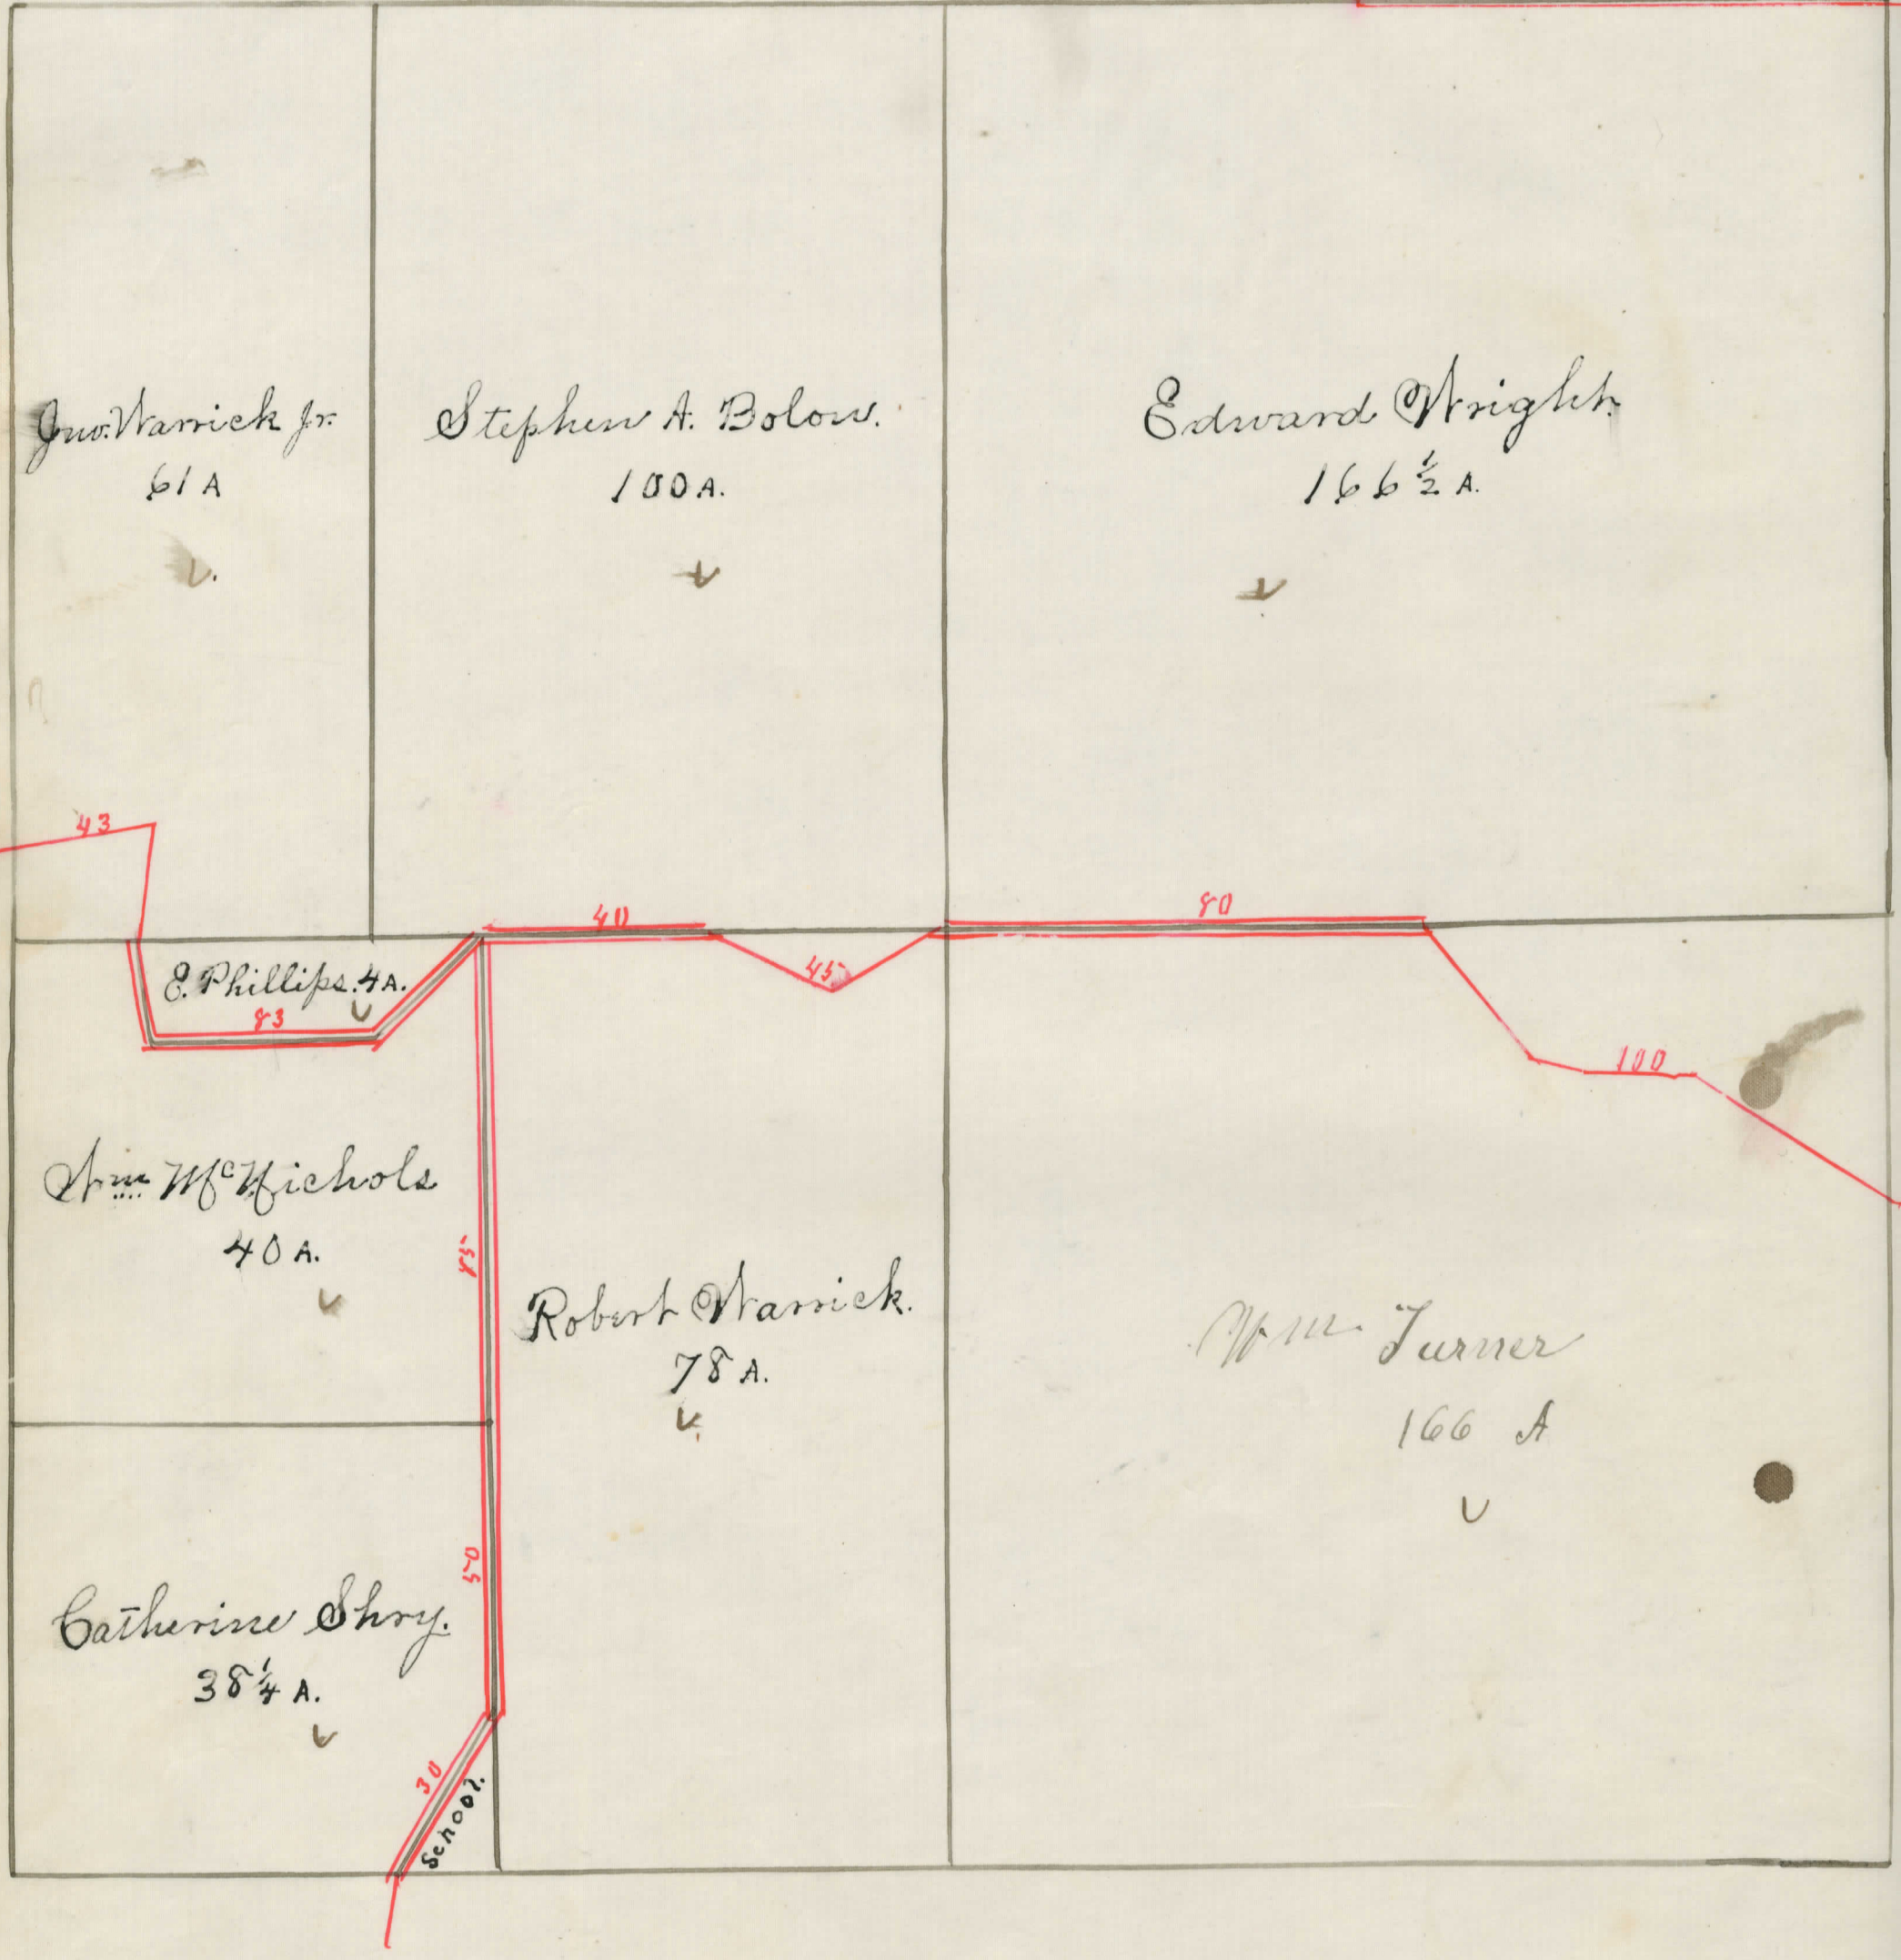 Jno. Warrick Jr.
61 A
Stephen A. Bolow.
100 A.
Edward Wright.
166 1/2 A.
43
40
80
45
E. Phillips. 4 A.
83
100
Wm McNichols
40 A.
85
Robert Warrick.
78 A.
Wm. Turner
166 A
50
Catherine Shry.
38 1/4 A.
30
School.